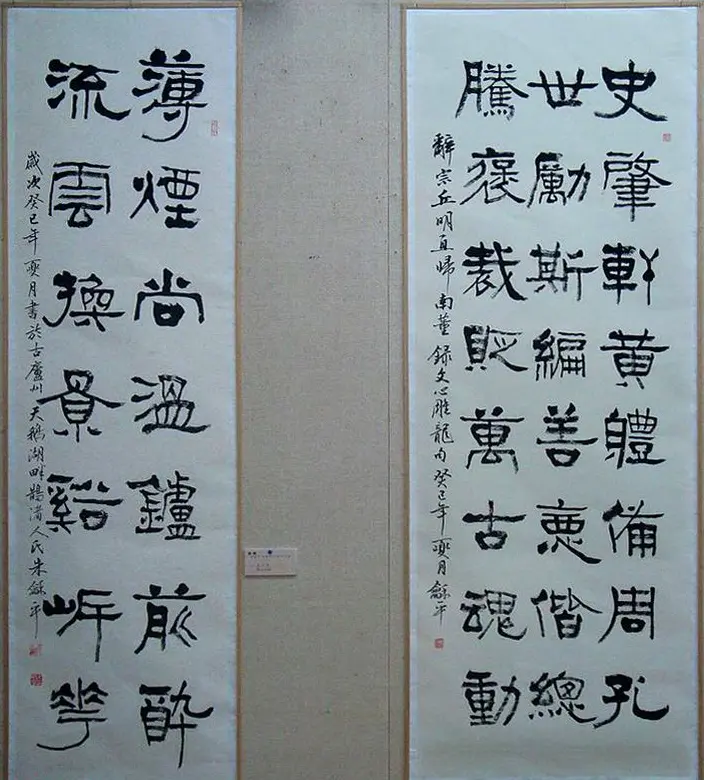 史肇軒黃體備周孔
世勵斯編善惡偕總
騰褒裁貶萬古魂動
辭宗丘明直歸南董 錄文心雕龍句 癸巳年月龢平
薄煙尚溫鑪前酔
流雲換景谿岍華
歲次癸巳年月書於古廬州天鵝湖畔鵲渚人氏朱龢平